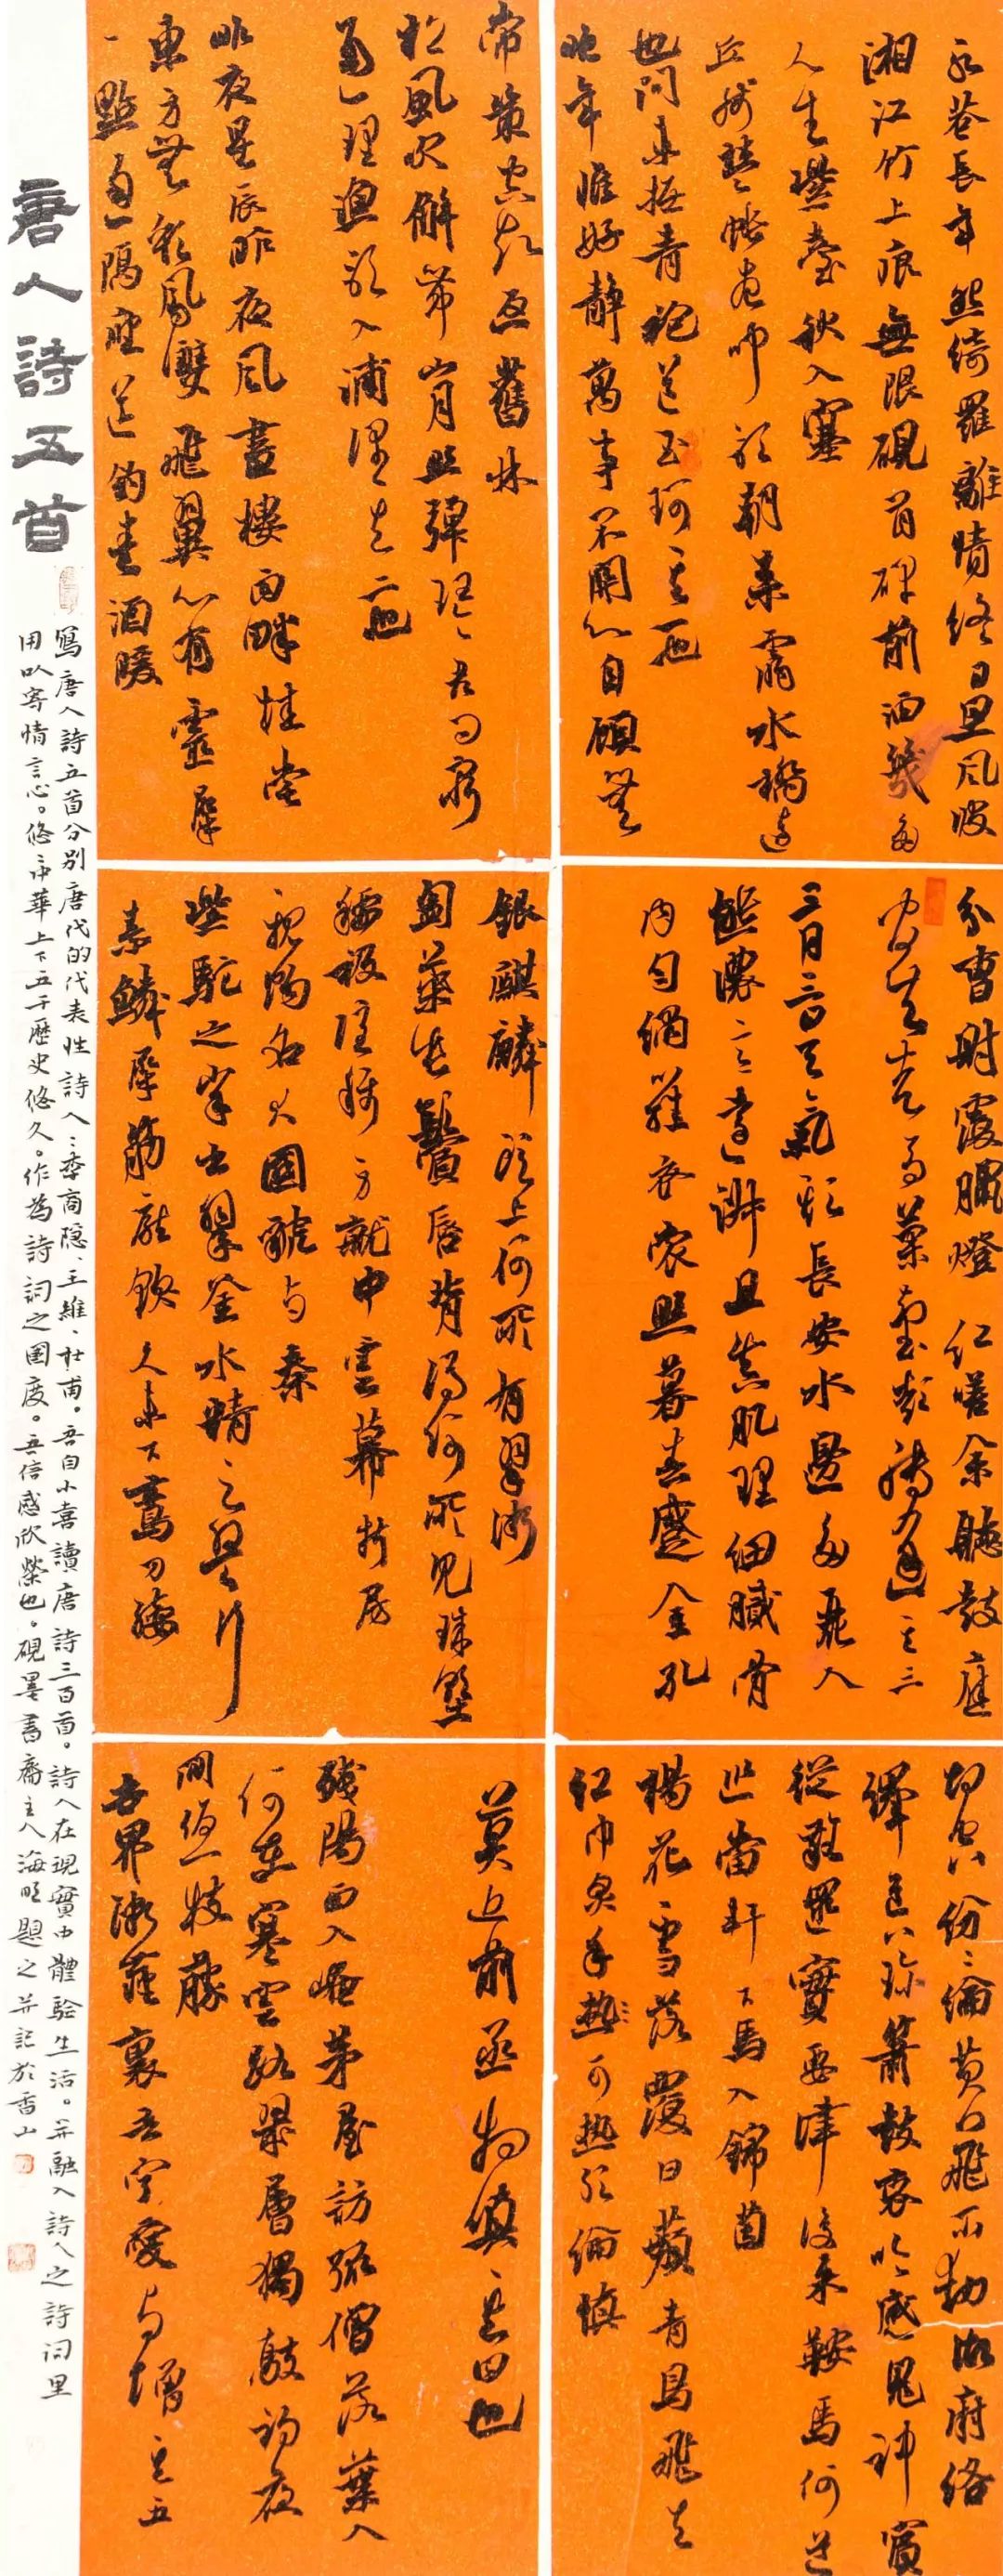 永巷長年怨綺羅離情終日思風波
湘江竹上痕無限硯首碑前洒幾多
人生紫臺秋入塞
兵殘楚帳夜歌朝来灞水橋邊
也問未抵青袍送玉珂其一也
晚年惟好静萬事不關心自顧無
常策空知返舊林
松風吹解带山月照彈琴君問窮
通理漁歌入浦深其二也
昨夜星辰昨夜風畫樓西畔桂堂
東方無彩鳳雙飛翼心有靈犀
一點通隔座送鈎春酒暖
分曹射覆臘燈紅嗟余聽鼓應
官去走馬蘭臺類轉蓬其三
三月三日天氣新長安水邊多麗人
態濃意遠淑且真肌理細膩骨
肉匀繡羅衣裳照暮春蹙金孔
銀麒麟頭上何所有翠微
匎葉垂鬢唇背後何所見珠壓
腰衱穩稱身就中雲幕椒房
親賜名大國虢与秦
紫駝之峯出翠釜水精之盤行
素鱗犀筯厭飫久未下鸞刀縷
切空紛綸黄門飛不動御府絡
繹送八珍簫鼓哀吟感鬼神賓
從雜遝實要津後来鞍馬何逡
巡當軒下馬入錦茵
楊花雪落覆白蘋青鳥飛去
紅巾炙手熱可熱絕倫慎
莫近前丞相瞋其四也
殘陽西入崦茅屋訪孤僧落葉人
何在寒雲路幾層獨敲初夜
閒倚一枝藤
世界微塵裏吾寧愛与憎其五
唐人詩五首
寫唐人詩五首分别唐代的代表性詩人:李商隱、王維、杜甫。吾自小喜讀唐詩三百首。詩人在現實中體驗生活。并融入詩人之詩詞里
用以寄情言心。悠中華上下五千歷史悠久。作為詩詞之國度。吾倍感欣榮也。硯墨書齋主人海旺題之并記於香山